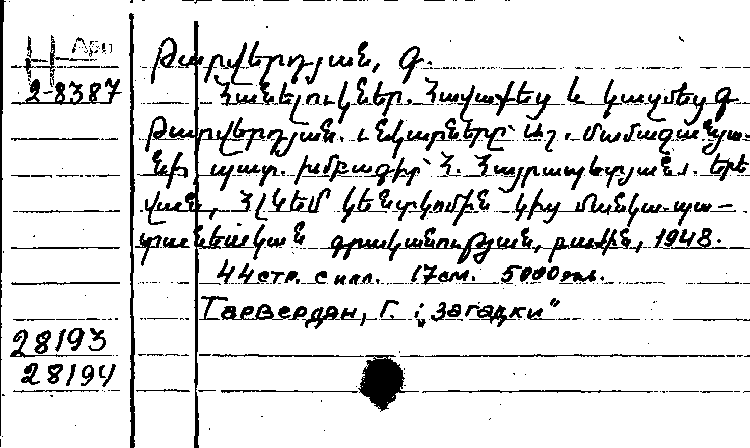 H Арм
2-8387
Թարվերդյան, Գ.
Հանելուկներ. Հավաքեց և կազմեց Գ.
Թարվերդյան. Նկարները՝ Աշ. Մամաջանյա-
նի պատ. խմբագիր՝ Հ. Հայրապետյան. Երե
վան, ՀԼԿԵՄ կենտկոմին կից մանկա-պա-
տանեկական գրականության, բաժին, 1948.
44 стр. с илл. 17 см. 5000 экз.
Тарвердян, Г. : „Загадки"
28193
28194